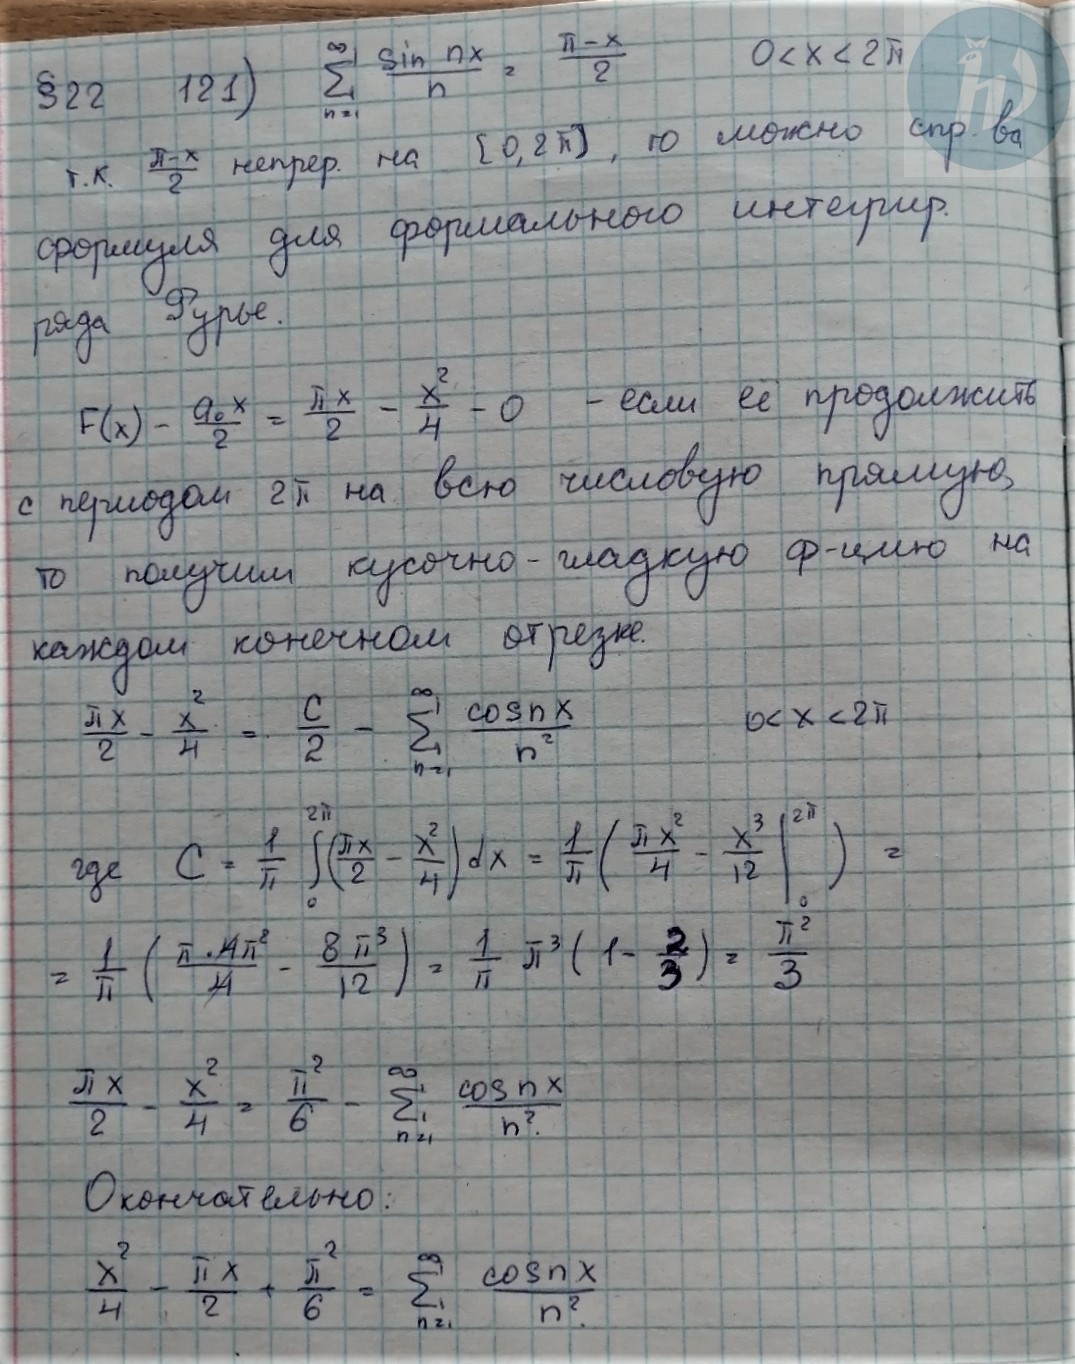 §22 121) \sum_{n=1}^{∞} \frac{sin nx}{n} = \frac{π-x}{2} 0<x<2π
т.к. \frac{π-x}{2} непрер. на [0,2π], то можно спр. ва
формуля для формального интегрир.
ряда Фурье.
F(x) - \frac{a_0 x}{2} = \frac{πx}{2} - \frac{x^2}{4} - 0 - если её продолжить
с периодом 2π на всю числовую прямую,
то получим кусочно-гладкую ф-цию на
каждом конечном отрезке.
\frac{πx}{2} - \frac{x^2}{4} = \frac{C}{2} - \sum_{n=1}^{∞} \frac{cos nx}{n^2} 0<x<2π
где C = \frac{1}{π} \int_0^{2π} (\frac{πx}{2} - \frac{x^2}{4}) dx = \frac{1}{π} (\frac{πx^2}{4} - \frac{x^3}{12} |_0^{2π}) =
= \frac{1}{π} (\frac{π·4π^2}{4} - \frac{8π^3}{12}) = \frac{1}{π} π^3 (1 - \frac{2}{3}) = \frac{π^2}{3}
\frac{πx}{2} - \frac{x^2}{4} = \frac{π^2}{6} - \sum_{n=1}^{∞} \frac{cos nx}{n^2}.
Окончательно:
\frac{x^2}{4} - \frac{πx}{2} + \frac{π^2}{6} = \sum_{n=1}^{∞} \frac{cos nx}{n^2}.